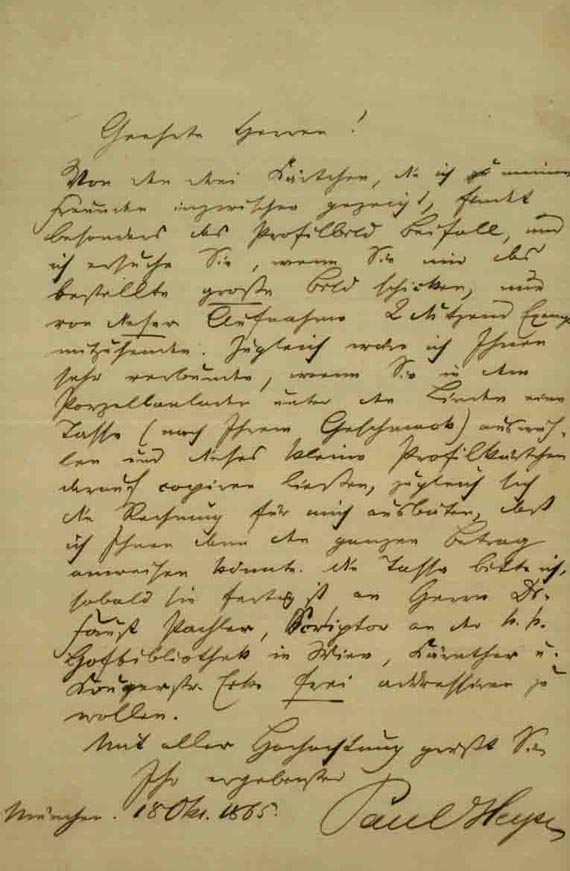 Geehrte Herren!
Von den drei Kärtchen, die ich meinen
Freunden inzwischen gezeigt, findet
besonders das Profilbild Beifall, und
ich ersuche Sie, wenn Sie mir das
bestellte große Bild schicken, nur
von dieser Aufnahme 2 Dutzend Exempl
mitzusenden. Zugleich wäre ich Ihnen
sehr verbunden, wenn Sie in dem
Porzellanladen unter den Linden eine
Tasse (nach Ihrem Geschmack) auswäh-
len und dieses kleine Profilkärtchen
darauf copiren ließen, zugleich sich
die Rechnung für mich ausbäten, daß
ich Ihnen dann den ganzen Betrag
anweisen könnte. Die Tasse bitte ich,
sobald sie fertig ist an Herrn Dr.
Faust Pachler, Scriptor an der k. k.
Hofbibliothek in Wien, Kärnther u.
Krugerstr. Ecke frei addressiren zu
wollen.
Mit aller Hochachtung grüßt Sie
Ihr ergebenster
München. 18 Okt. 1865.
Paul Heyse